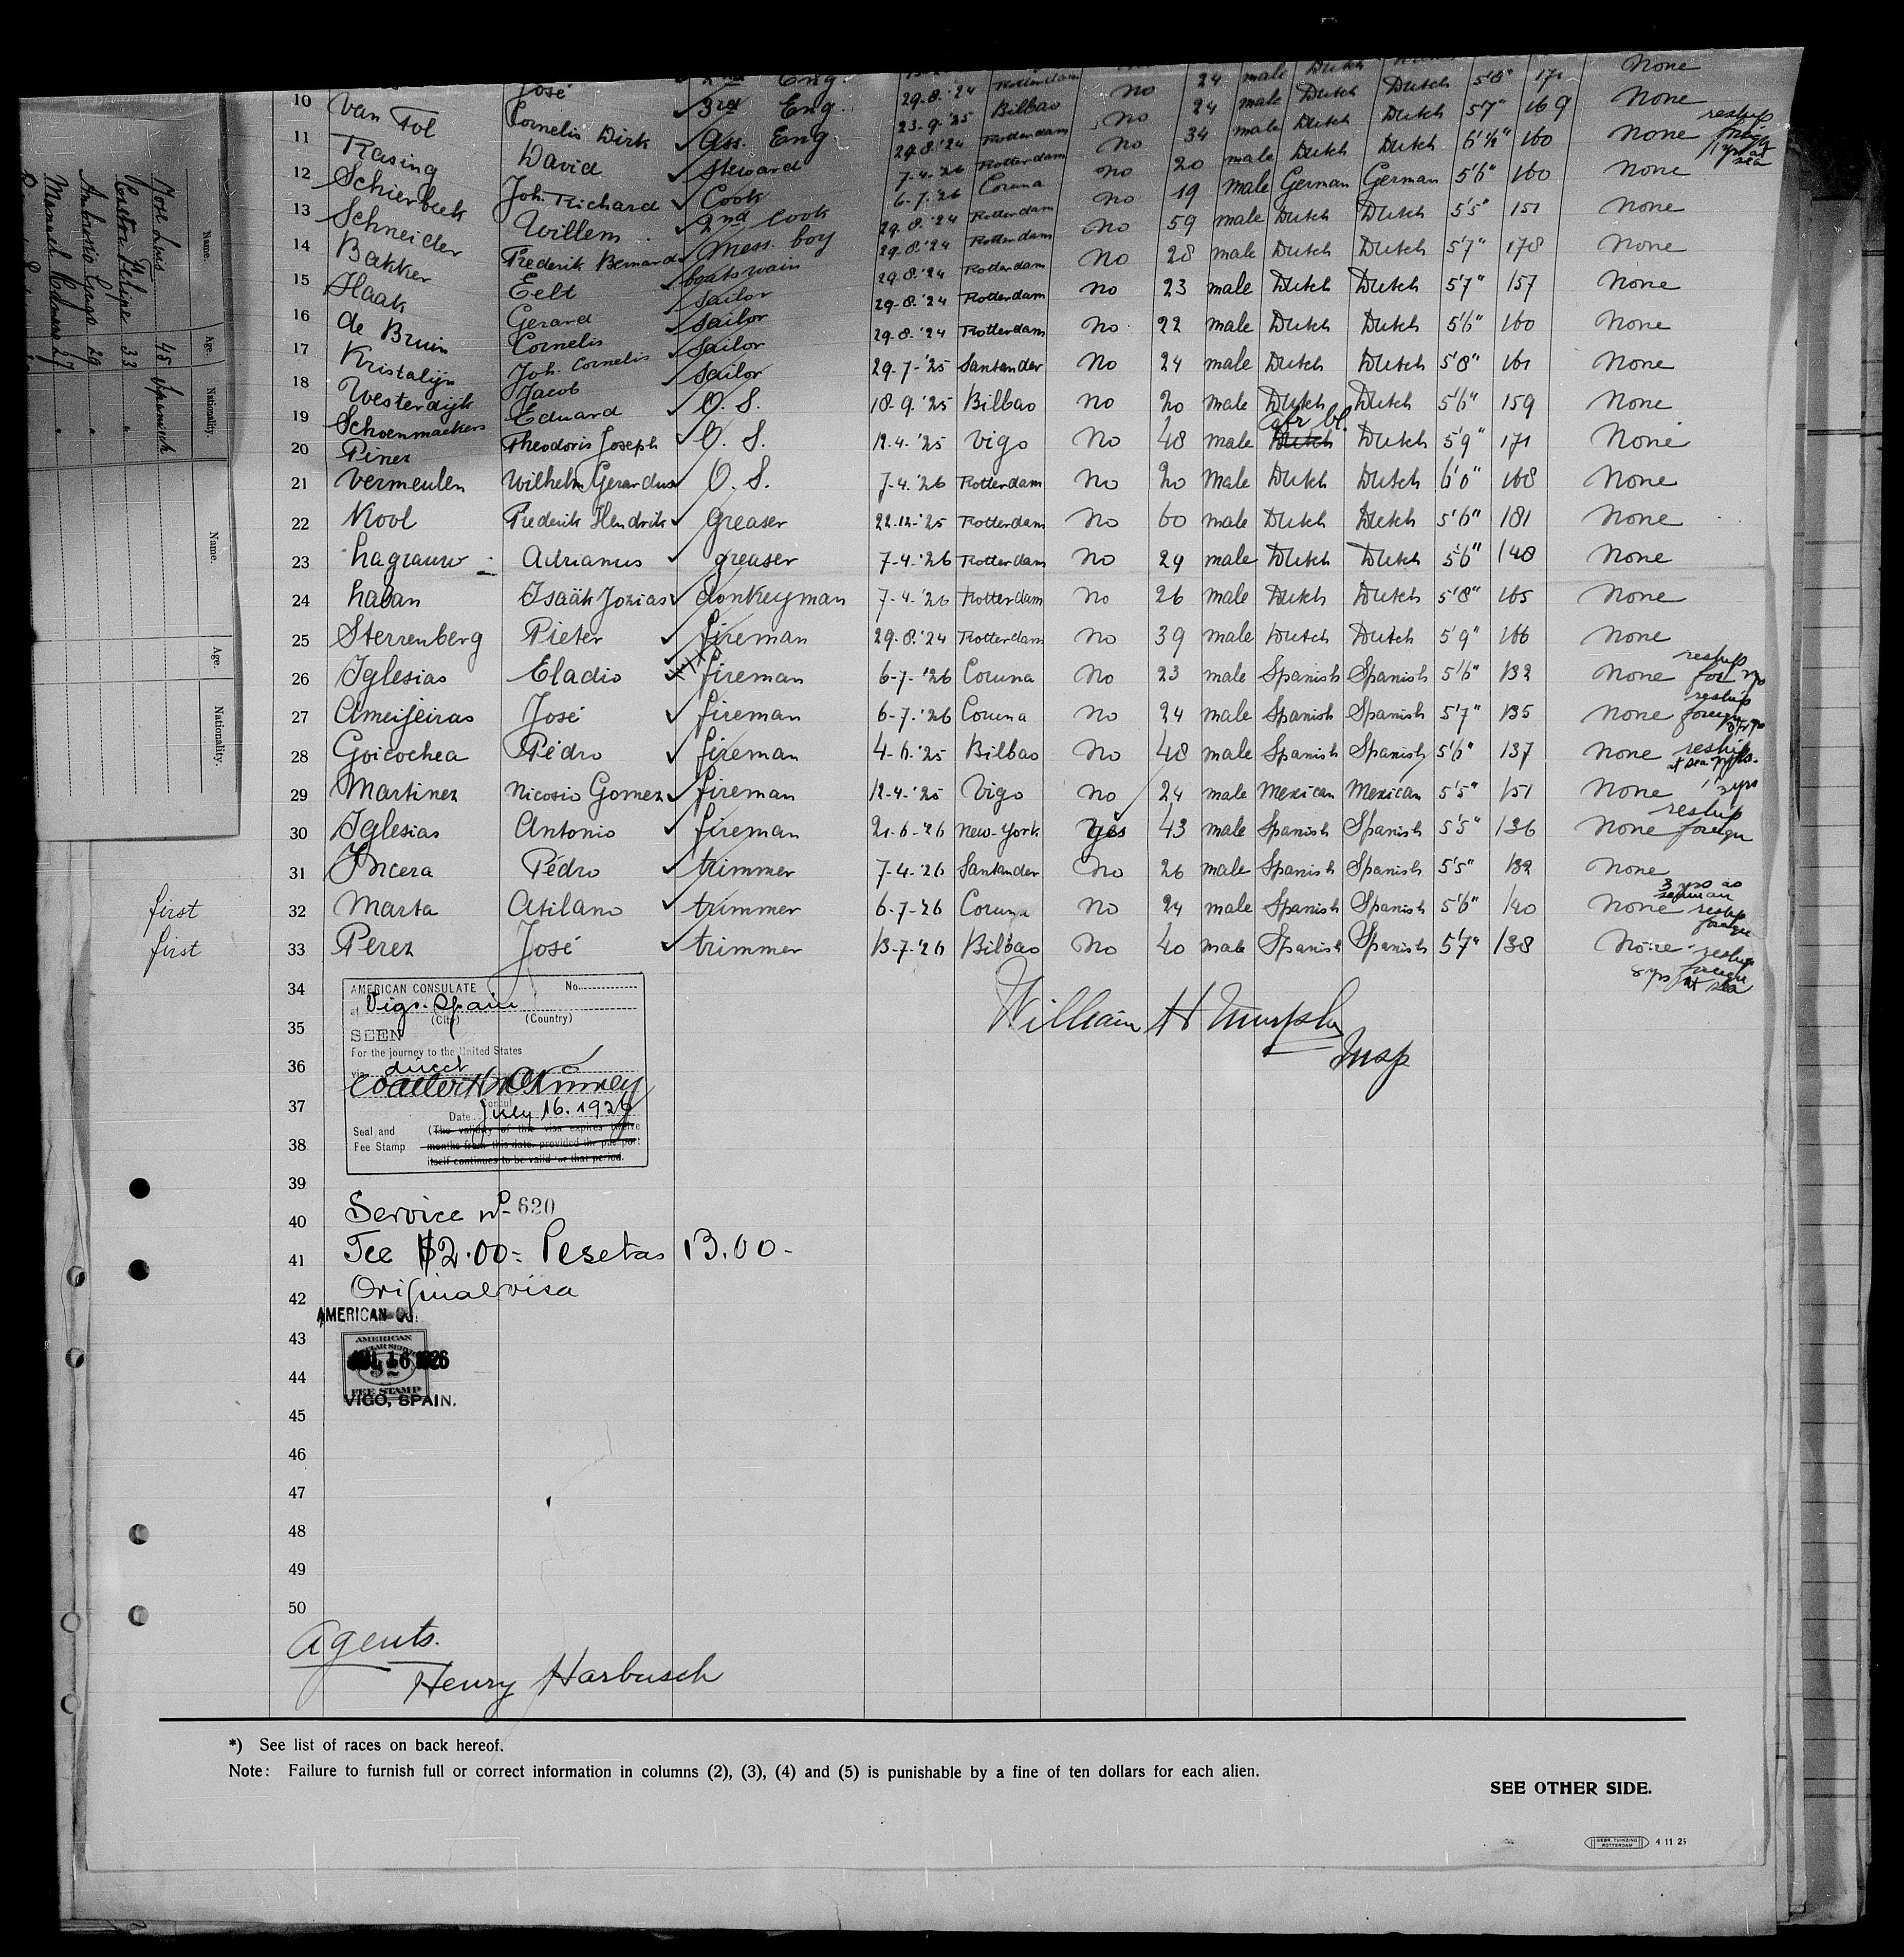 José 2nd Eng. Rotterdam 24 male Dutch None
10 van Tol Cornelis Dirk 3rd Eng. 29.8.'24 Bilbao No 24 male Dutch Dutch 5'8" 171 None
11 Rasing David Ass. Eng 23-9-'25 Rotterdam No 34 male Dutch Dutch 5'7" 169 None reship foreign 1 yr at sea
12 Schierbeek Joh. Richard Steward 29.8.'24 Rotterdam No 20 male Dutch Dutch 6'1½" 160 None
13 Schneider Willem Cook 7-4-'26 6-7-'26 Coruna No 19 male German German 5'6" 160 None
14 Bakker Frederik Bernard 2nd Cook 29.8.'24 Rotterdam No 59 male Dutch Dutch 5'5" 151 None
15 Haak Eelt Mess. boy boatswain 29.8.'24 Rotterdam No 28 male Dutch Dutch 5'7" 178 None
16 de Bruin Gerard Sailor 29.8.'24 Rotterdam No 23 male Dutch Dutch 5'7" 157 None
17 Kristalijn Cornelis Sailor 29-8-'24 Rotterdam No 22 male Dutch Dutch 5'6" 160 None
18 Westerdijk Joh. Cornelis Sailor 29-7-'25 Santander No 24 male Dutch Dutch 5'8" 161 None
19 Schoenmaekers Jacob Eduard Sailor O. S. 18-9-'25 Bilbao No 20 male Dutch Dutch 5'6" 159 None
20 Pinez Theodoris Joseph O. S. 12-4-'25 Vigo No 48 male Dutch afr bl. Dutch 5'9" 171 None
21 Vermeulen Wilhelm Gerardus O. S. 7-4-'26 Rotterdam No 20 male Dutch Dutch 6'0" 168 None
22 Kool Frederik Hendrik greaser 22-12-'25 Rotterdam No 60 male Dutch Dutch 5'6" 181 None
23 Lagrauw Adrianus greaser 7-4-'26 Rotterdam No 29 male Dutch Dutch 5'6" 148 None
24 Laban Isaäk Jozias donkeyman 7-4-'26 Rotterdam No 26 male Dutch Dutch 5'8" 165 None
25 Sterrenberg Pieter fireman 29-8-'24 Rotterdam No 39 male Dutch Dutch 5'9" 166 None
26 Iglesias Eladio fireman 6-7-'26 Coruna No 23 male Spanish Spanish 5'6" 132 None reship for
27 Ameijeiras José fireman 6-7-'26 Coruna No 24 male Spanish Spanish 5'7" 135 None reship foreign
28 Goicochea Pédro fireman 4-6-'25 Bilbao No 48 male Spanish Spanish 5'6" 137 None reship at sea
29 Martinez Nicosio Gomez fireman 12-4-'25 Vigo No 24 male Mexican Mexican 5'5" 151 None
30 Iglesias Antonio fireman 21-6-'26 New-York Yes 43 male Spanish Spanish 5'5" 136 None reship foreign
31 Incera Pédro trimmer 7-4-26 Santander No 26 male Spanish Spanish 5'5" 132 None
first 32 Marta Atilano trimmer 6-7-26 Coruna No 24 male Spanish Spanish 5'6" 140 None 3 yrs as seaman reship foreign
first 33 Perez José trimmer 13-7-'26 Bilbao No 40 male Spanish Spanish 5'7" 138 None reship foreign 8 yrs at sea
34
35
36
37
38
39
40
41
42
43
44
45
46
47
48
49
50
AMERICAN CONSULATE No.
at Vigo. Spain
(City) (Country)
SEEN
For the journey to the United States
via direct
Consul
Date July 16. 1926
Seal and (The validity of this visa expires twelve
Fee Stamp months from this date, provided the passport
itself continues to be valid for that period.
William H Murphy
Insp
Service No 620
Fee $2.00 = Pesetas 13.00-
Original visa
AMERICAN CO
AMERICAN
FEE STAMP
JUL 16 1926
VIGO, SPAIN.
Agents.
Henry Harbusch
*) See list of races on back hereof.
Note: Failure to furnish full or correct information in columns (2), (3), (4) and (5) is punishable by a fine of ten dollars for each alien.
SEE OTHER SIDE.
GEBR. TUINZING ROTTERDAM 4 11 25
Name. Age. Nationality.
José Luis 45 Spanish
Felipe 33 "
29 "
Manuel 27 "
Name. Age. Nationality.